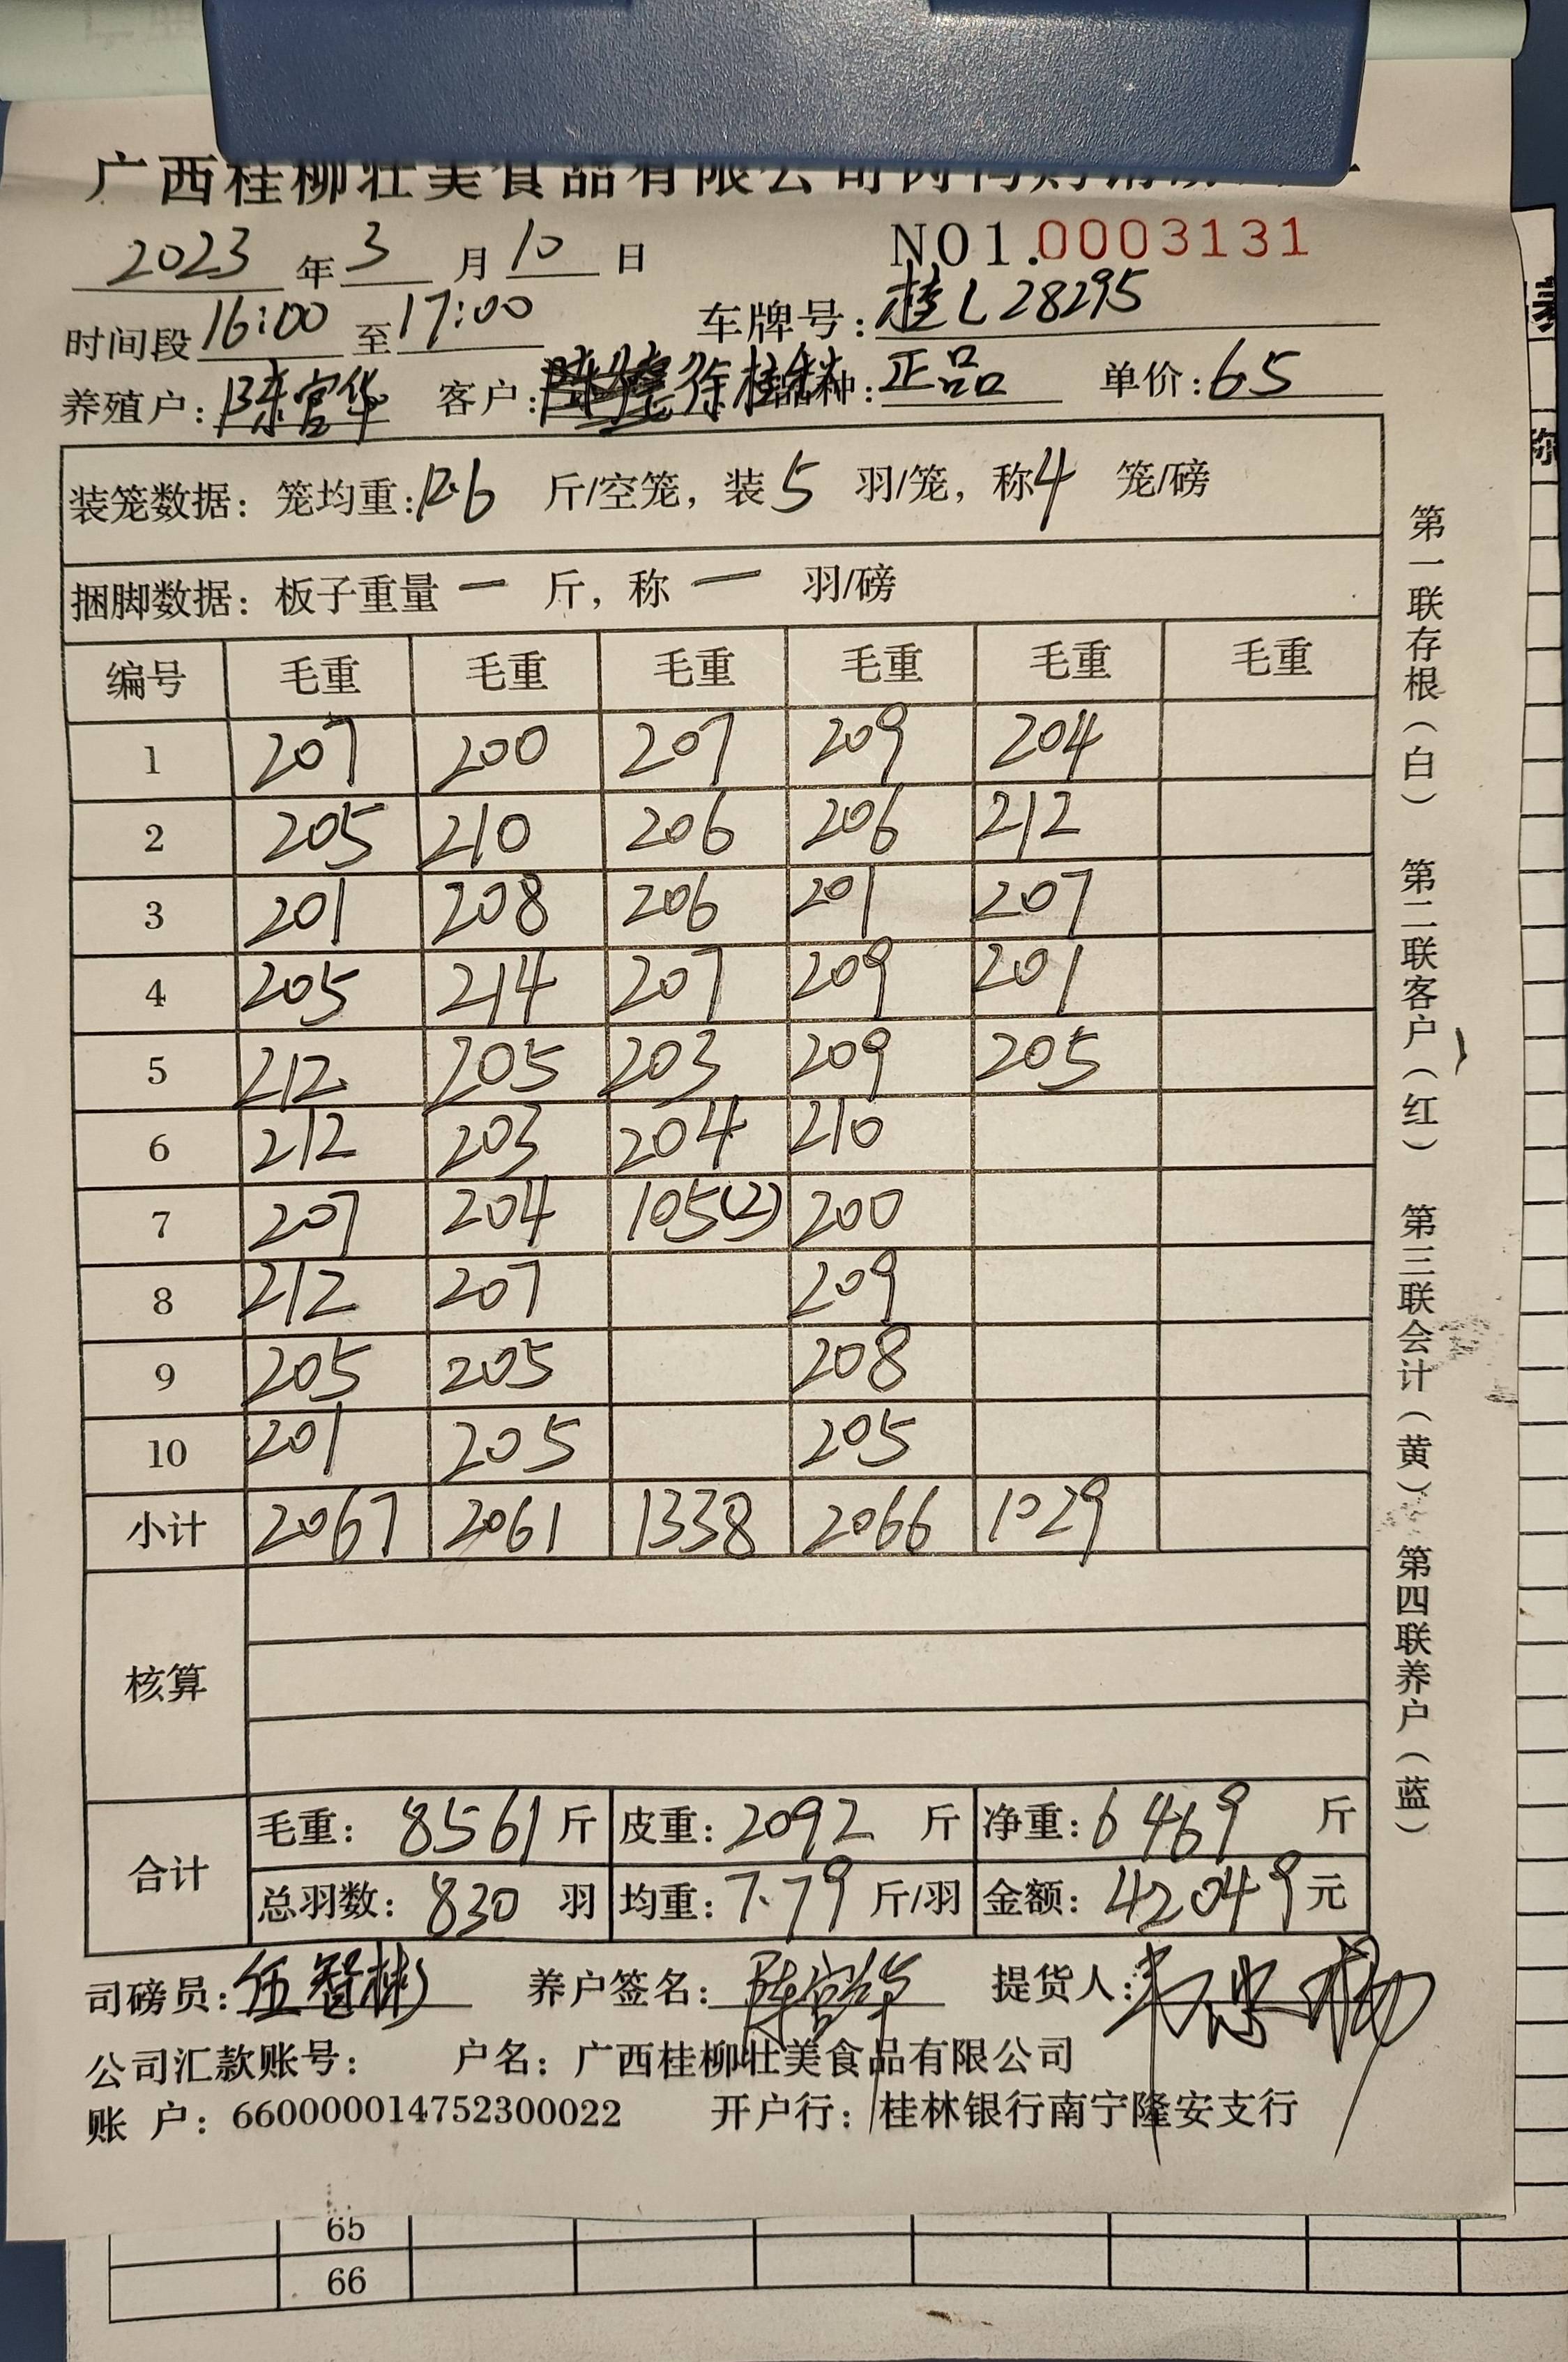 广西桂柳壮美食品有限公司
2023年3月10日 NO1.0003131
时间段16:00至17:00 车牌号:桂L28295
养殖户:陈官华 客户:徐桂林 品种:正品 单价:65
装笼数据:笼均重:12.6斤/空笼,装5羽/笼,称4笼/磅
捆脚数据:板子重量 — 斤,称 — 羽/磅
编号 毛重 毛重 毛重 毛重 毛重 毛重
1 207 200 207 209 204
2 205 210 206 206 212
3 201 208 206 201 207
4 205 214 207 209 201
5 212 205 203 209 205
6 212 203 204 210
7 207 204 105(2) 200
8 212 207 209
9 205 205 208
10 201 205 205
小计 2067 2061 1338 2066 1029
核算
合计 毛重:8561斤 皮重:2092斤 净重:6469斤
总羽数:830羽 均重:7.79斤/羽 金额:42049元
司磅员:伍智彬 养户签名:陈官华 提货人:
公司汇款账号: 户名:广西桂柳壮美食品有限公司
账 户:660000014752300022 开户行:桂林银行南宁隆安支行
第一联存根(白) 第二联客户(红) 第三联会计(黄) 第四联养户(蓝)
65
66